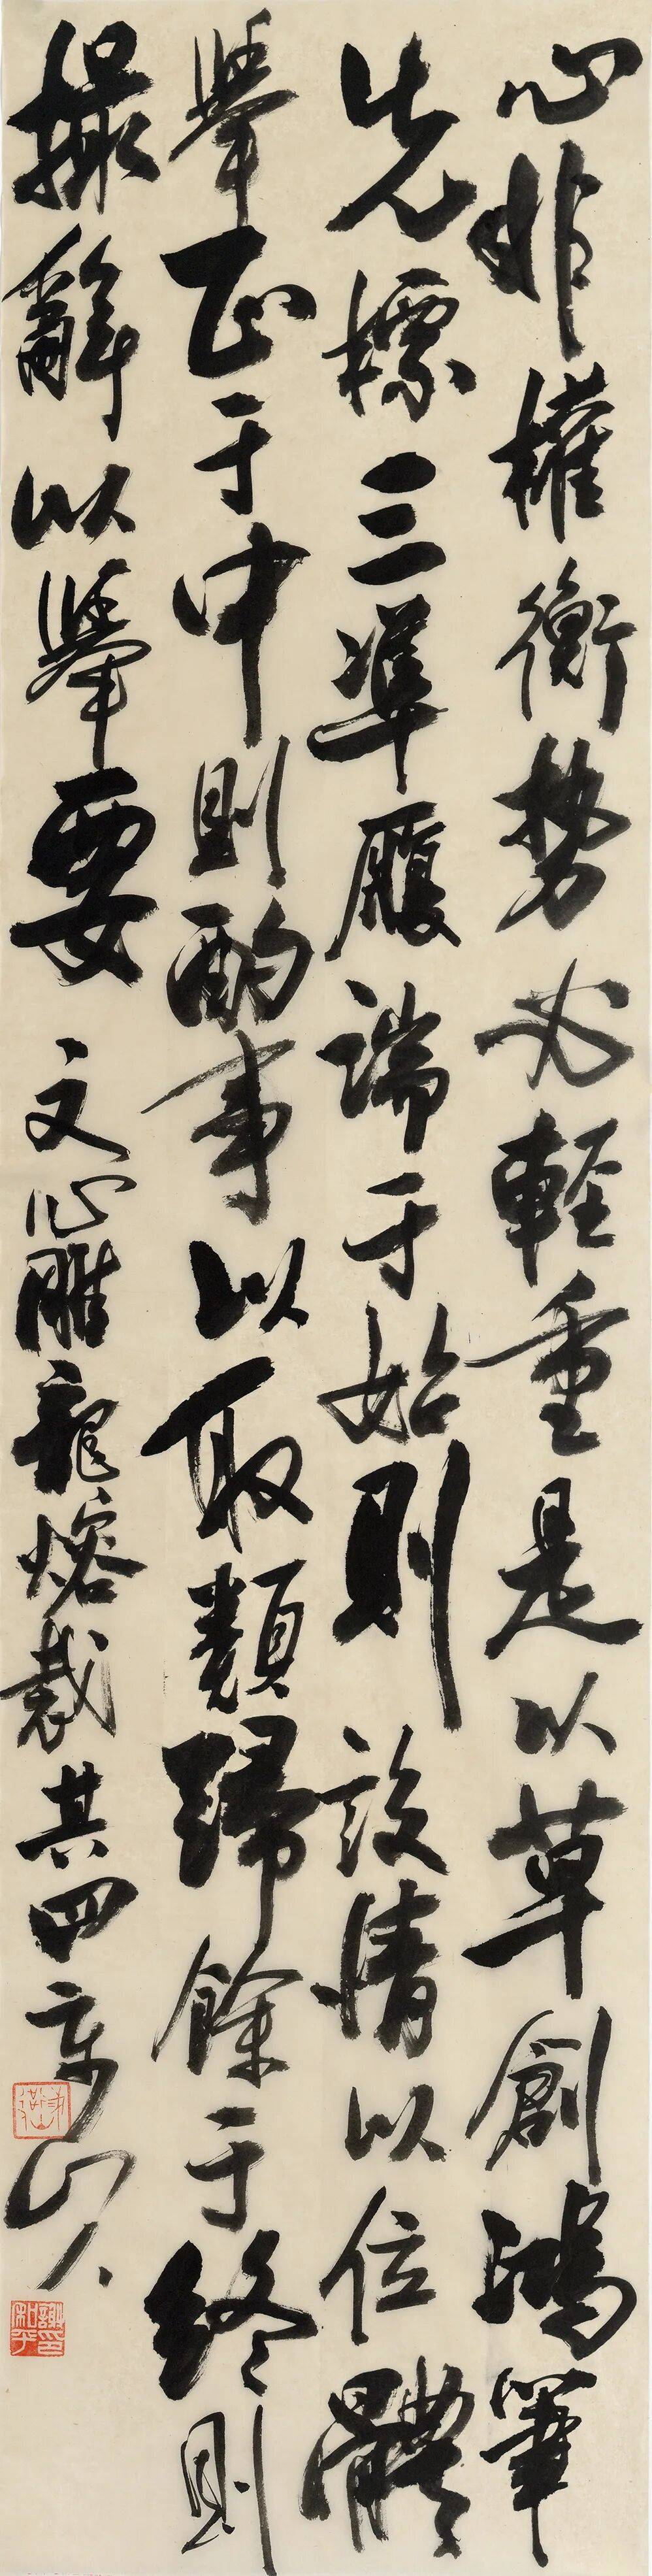 心非權衡勢必輕重是以草創鴻筆
先標三準履端于始則設情以位體
舉正于中則酌事以取類歸餘于終則
撮辭以舉要 文心雕龍熔裁其四 山人
謝和平印